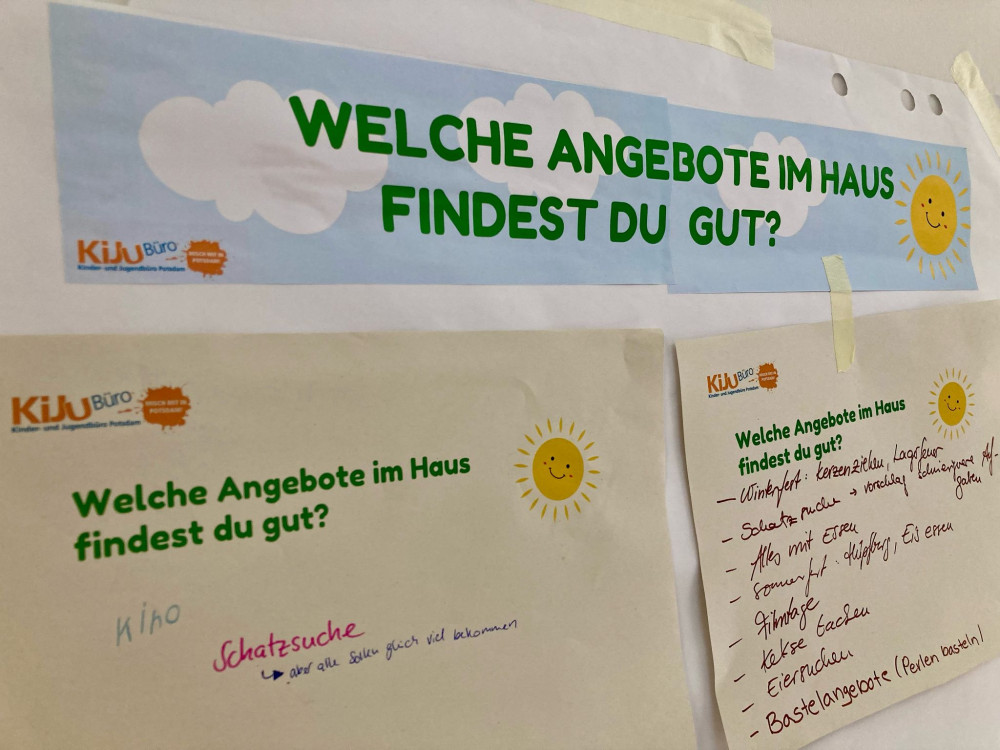 WELCHE ANGEBOTE IM HAUS
FINDEST DU GUT?
KiJu Büro
Kinder- und Jugendbüro Potsdam
MISCH MIT IN
POTSDAM!
KiJu Büro
Kinder- und Jugendbüro Potsdam
MISCH MIT IN
POTSDAM!
Welche Angebote im Haus
findest du gut?
Kino
Schatzsuche
↳ aber alle sollen gleich viel bekommen
KiJu Büro
Kinder- und Jugendbüro Potsdam
MISCH MIT IN
POTSDAM!
Welche Angebote im Haus
findest du gut?
- Winterfest: Kerzenziehen, Lagerfeuer
- Schatzsuche → Vorschlag schwierigere Auf-
gaben
- Alles mit Essen
- Sommerfest: Hüpfburg, Eis essen
- Filmtage
- Kekse backen
- Eiersuchen
- Bastelangebote (Perlen basteln)